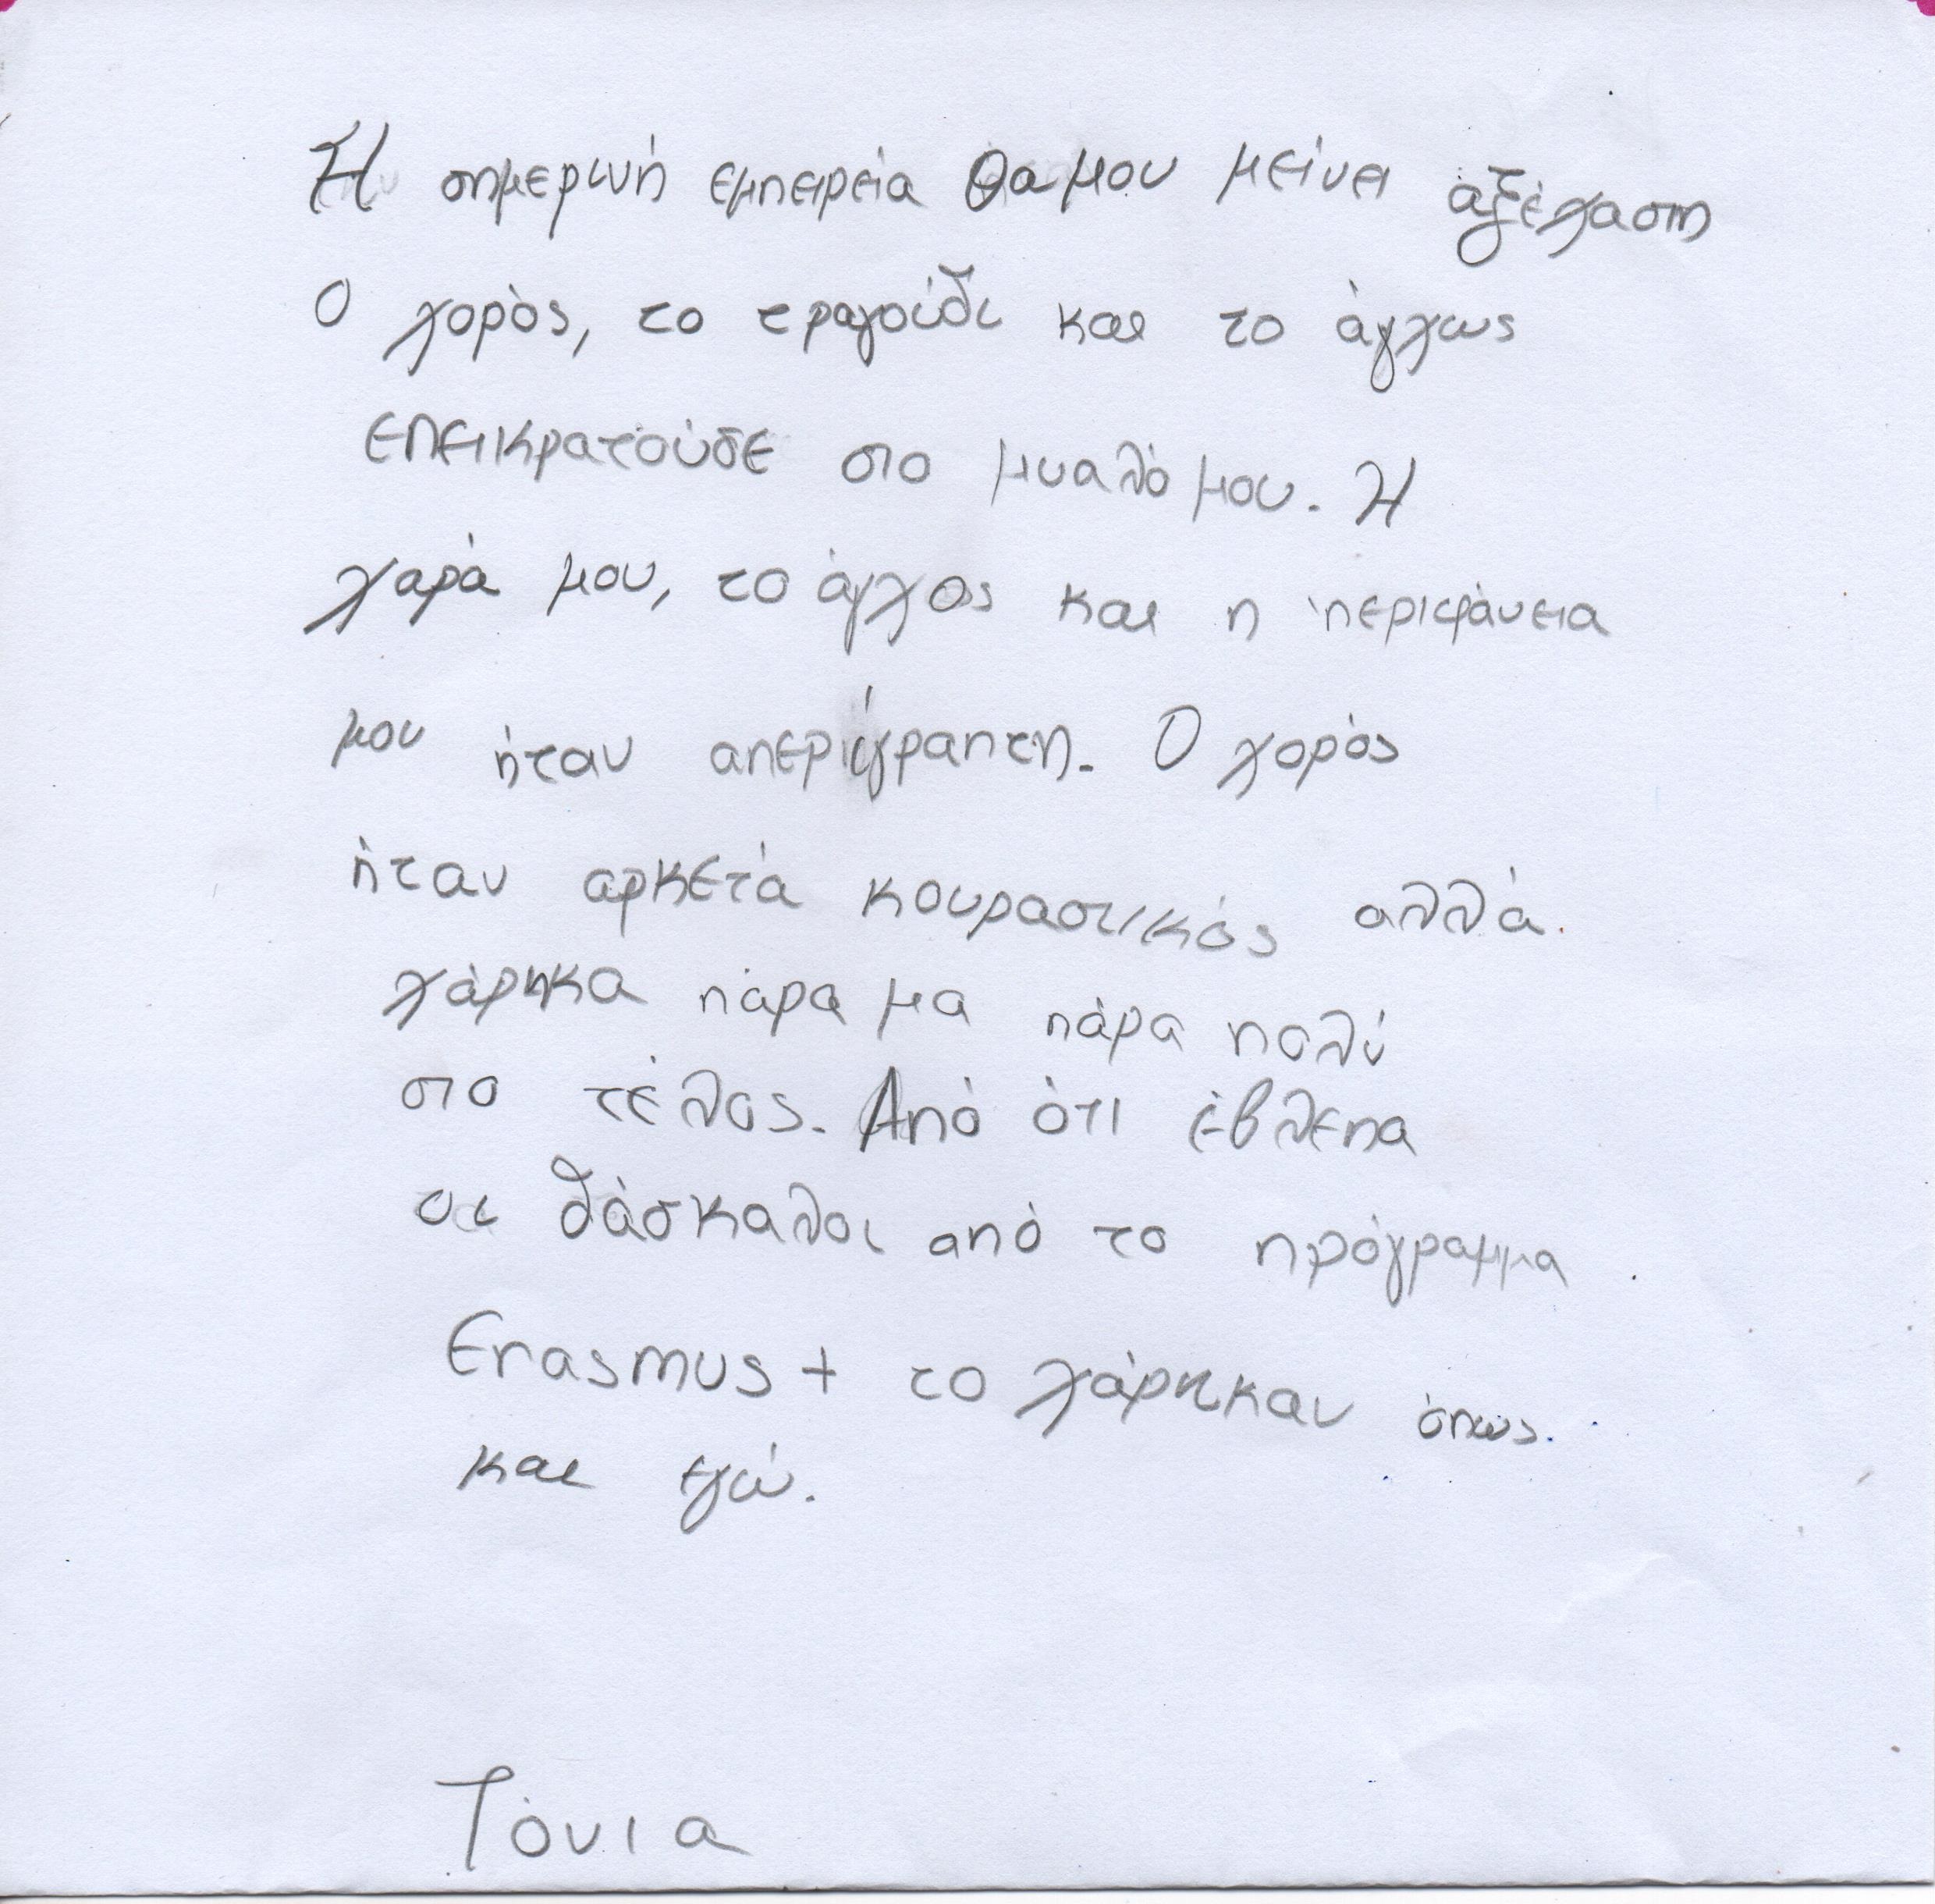 Η σημερινή εμπειρεία θα μου μείνει αξέχαστη
Ο χορός, το τραγούδι και το άγχως
επεικρατούσε στο μυαλό μου. Η
χαρά μου, το άγχος και η περιφάνεια
μου ήταν απερίγραπτη. Ο χορός
ήταν αρκετά κουραστικός αλλά
χάρηκα πάρα μα πάρα πολύ
στο τέλος. Από ότι έβλεπα
οι δάσκαλοι από το πρόγραμμα
Erasmus + το χάρηκαν όπως
και εγώ.
Τόνια